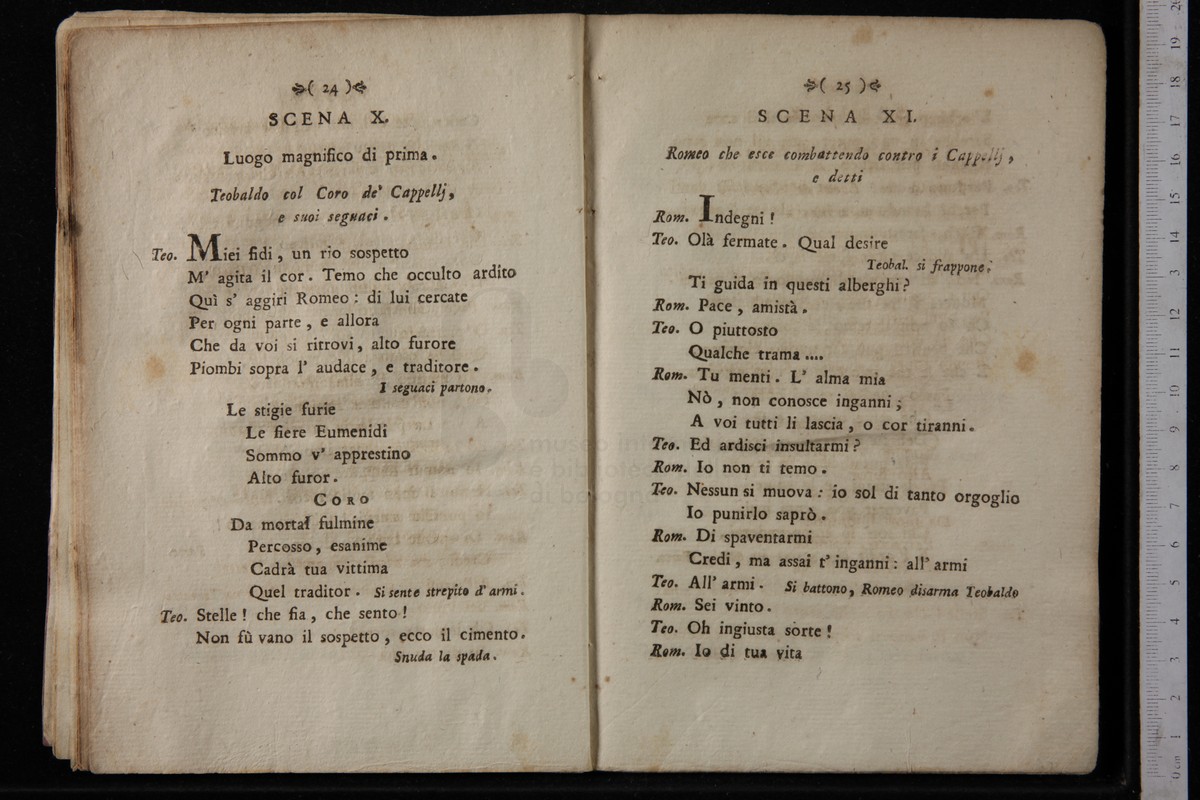 ( 24 )
SCENA X.
Luogo magnifico di prima.
Teobaldo col Coro de' Cappellj,
e suoi seguaci.
Teo. Miei fidi, un rio sospetto
M' agita il cor. Temo che occulto ardito
Quì s' aggiri Romeo: di lui cercate
Per ogni parte, e allora
Che da voi si ritrovi, alto furore
Piombi sopra l' audace, e traditore.
I seguaci partono.
Le stigie furie
Le fiere Eumenidi
Sommo v' apprestino
Alto furor.
CORO
Da mortal fulmine
Percosso, esanime
Cadrà tua vittima
Quel traditor. Si sente strepito d' armi.
Teo. Stelle! che fia, che sento!
Non fù vano il sospetto, ecco il cimento.
Snuda la spada.
( 25 )
SCENA XI.
Romeo che esce combattendo contro i Cappellj,
e detti
Rom. Indegni!
Teo. Olà fermate. Qual desire
Teobal. si frappone.
Ti guida in questi alberghi?
Rom. Pace, amistà.
Teo. O piuttosto
Qualche trama....
Rom. Tu menti. L' alma mia
Nò, non conosce inganni;
A voi tutti li lascia, o cor tiranni.
Teo. Ed ardisci insultarmi?
Rom. Io non ti temo.
Teo. Nessun si muova: io sol di tanto orgoglio
Io punirlo saprò.
Rom. Di spaventarmi
Credi, ma assai t' inganni: all' armi
Teo. All' armi. Si battono, Romeo disarma Teobaldo
Rom. Sei vinto.
Teo. Oh ingiusta sorte!
Rom. Io di tua vita